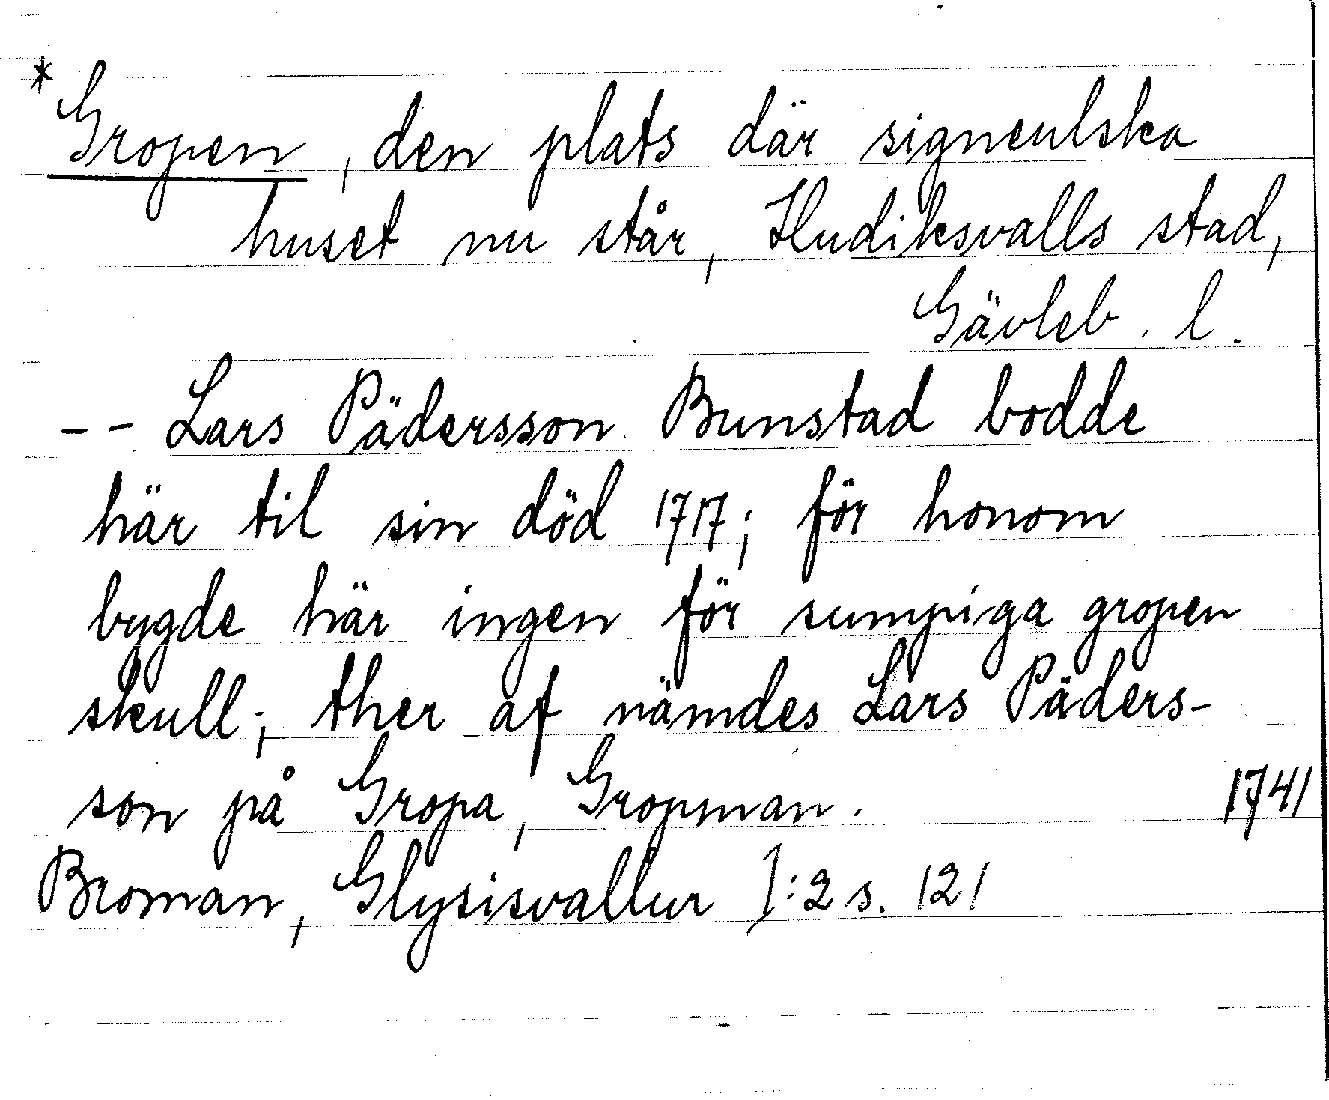 * Gropen, den plats där signeulska
huset nu står, Hudiksvalls stad,
Gävleb. l.
-- Lars Pädersson Bunstad bodde
här til sin död 1717; för honom
bygde här ingen för sumpiga gropen
skull; ther af nämdes Lars Päders-
son på Gropa, Gropman. 1741
Broman, Glysisvallur I:2 s. 121